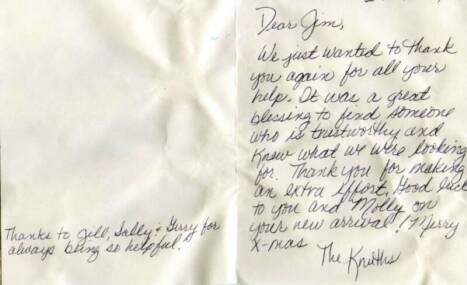 Dear Jim,
We just wanted to thank
you again for all your
help. It was a great
blessing to find someone
who is trustworthy and
knew what we were looking
for. Thank you for making
an extra effort. Good luck
to you and Molly on
your new arrival! Merry
X-mas
The
Thanks to Jill, Sally & Gerry for
always being so helpful.